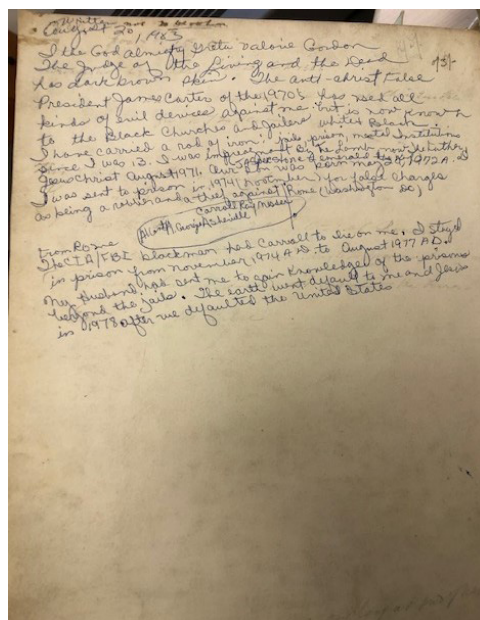 20, 1983
I the God almighty Greta Valorie Gordon
The Judge of the Living and the Dead
has dark brown skin. The anti-christ False
President James Carter of the 1970's has used all
kinds of evil devices against me but is now known
to the Black Churches and Jailers white & Black.
I have carried a rod of iron: jails, prison, mental Institutions
since I was 13. I was by the Lamb now the Father
Jesus Christ August 1971. Our was born May 1972 A.D
I was sent to prison in 1974 (November) for false charges
as being a robber and a thief against Rome (Washington DC)
Carroll Ray
George
from Rome
The CIA/FBI blackman had Carroll to lie on me. I stayed
in prison from November 1974 A.D. to August 1977 A.D.
My Husband had sent me to gain knowledge of the prisons
beyond the jails. The earth went default to me and Jesus
in 1978 after we defaulted the United States